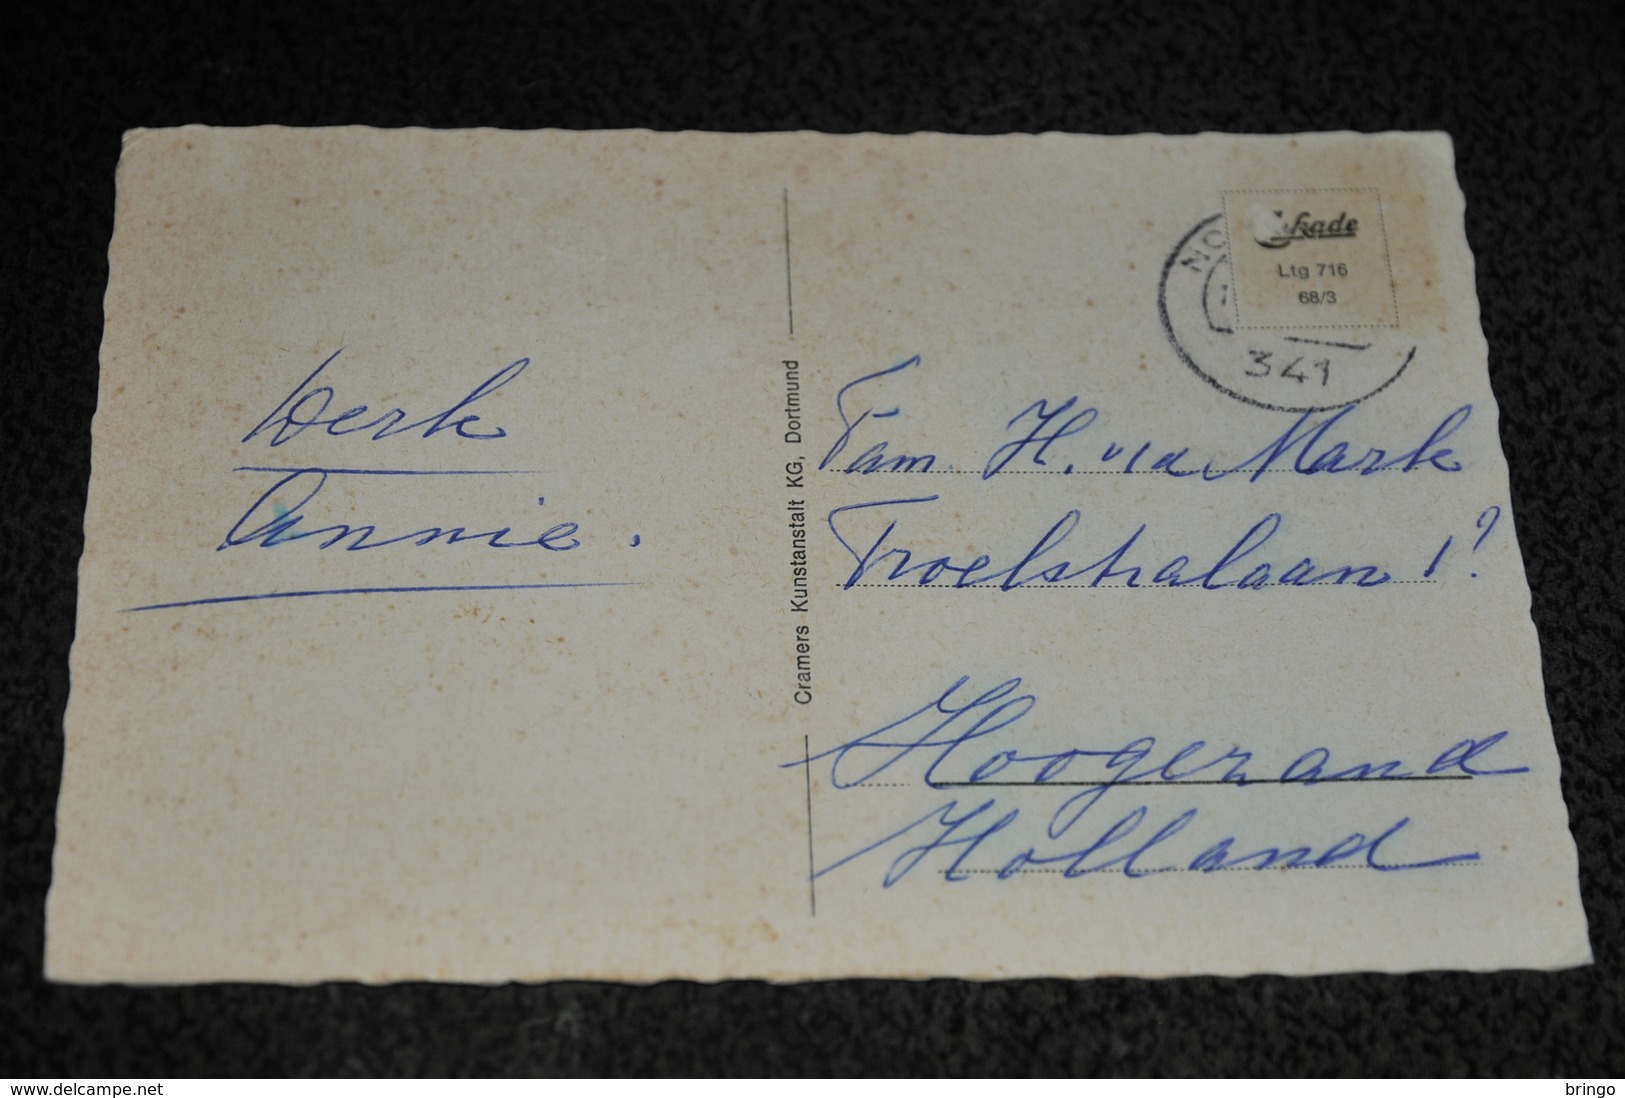 Derk
Annie.
Cramers Kunstanstalt KG, Dortmund
Ltg 716
68/3
341
Fam. H. v.d Mark
Troelstralaan 1?
Hoogezand
Holland
www.delcampe.net
bringo